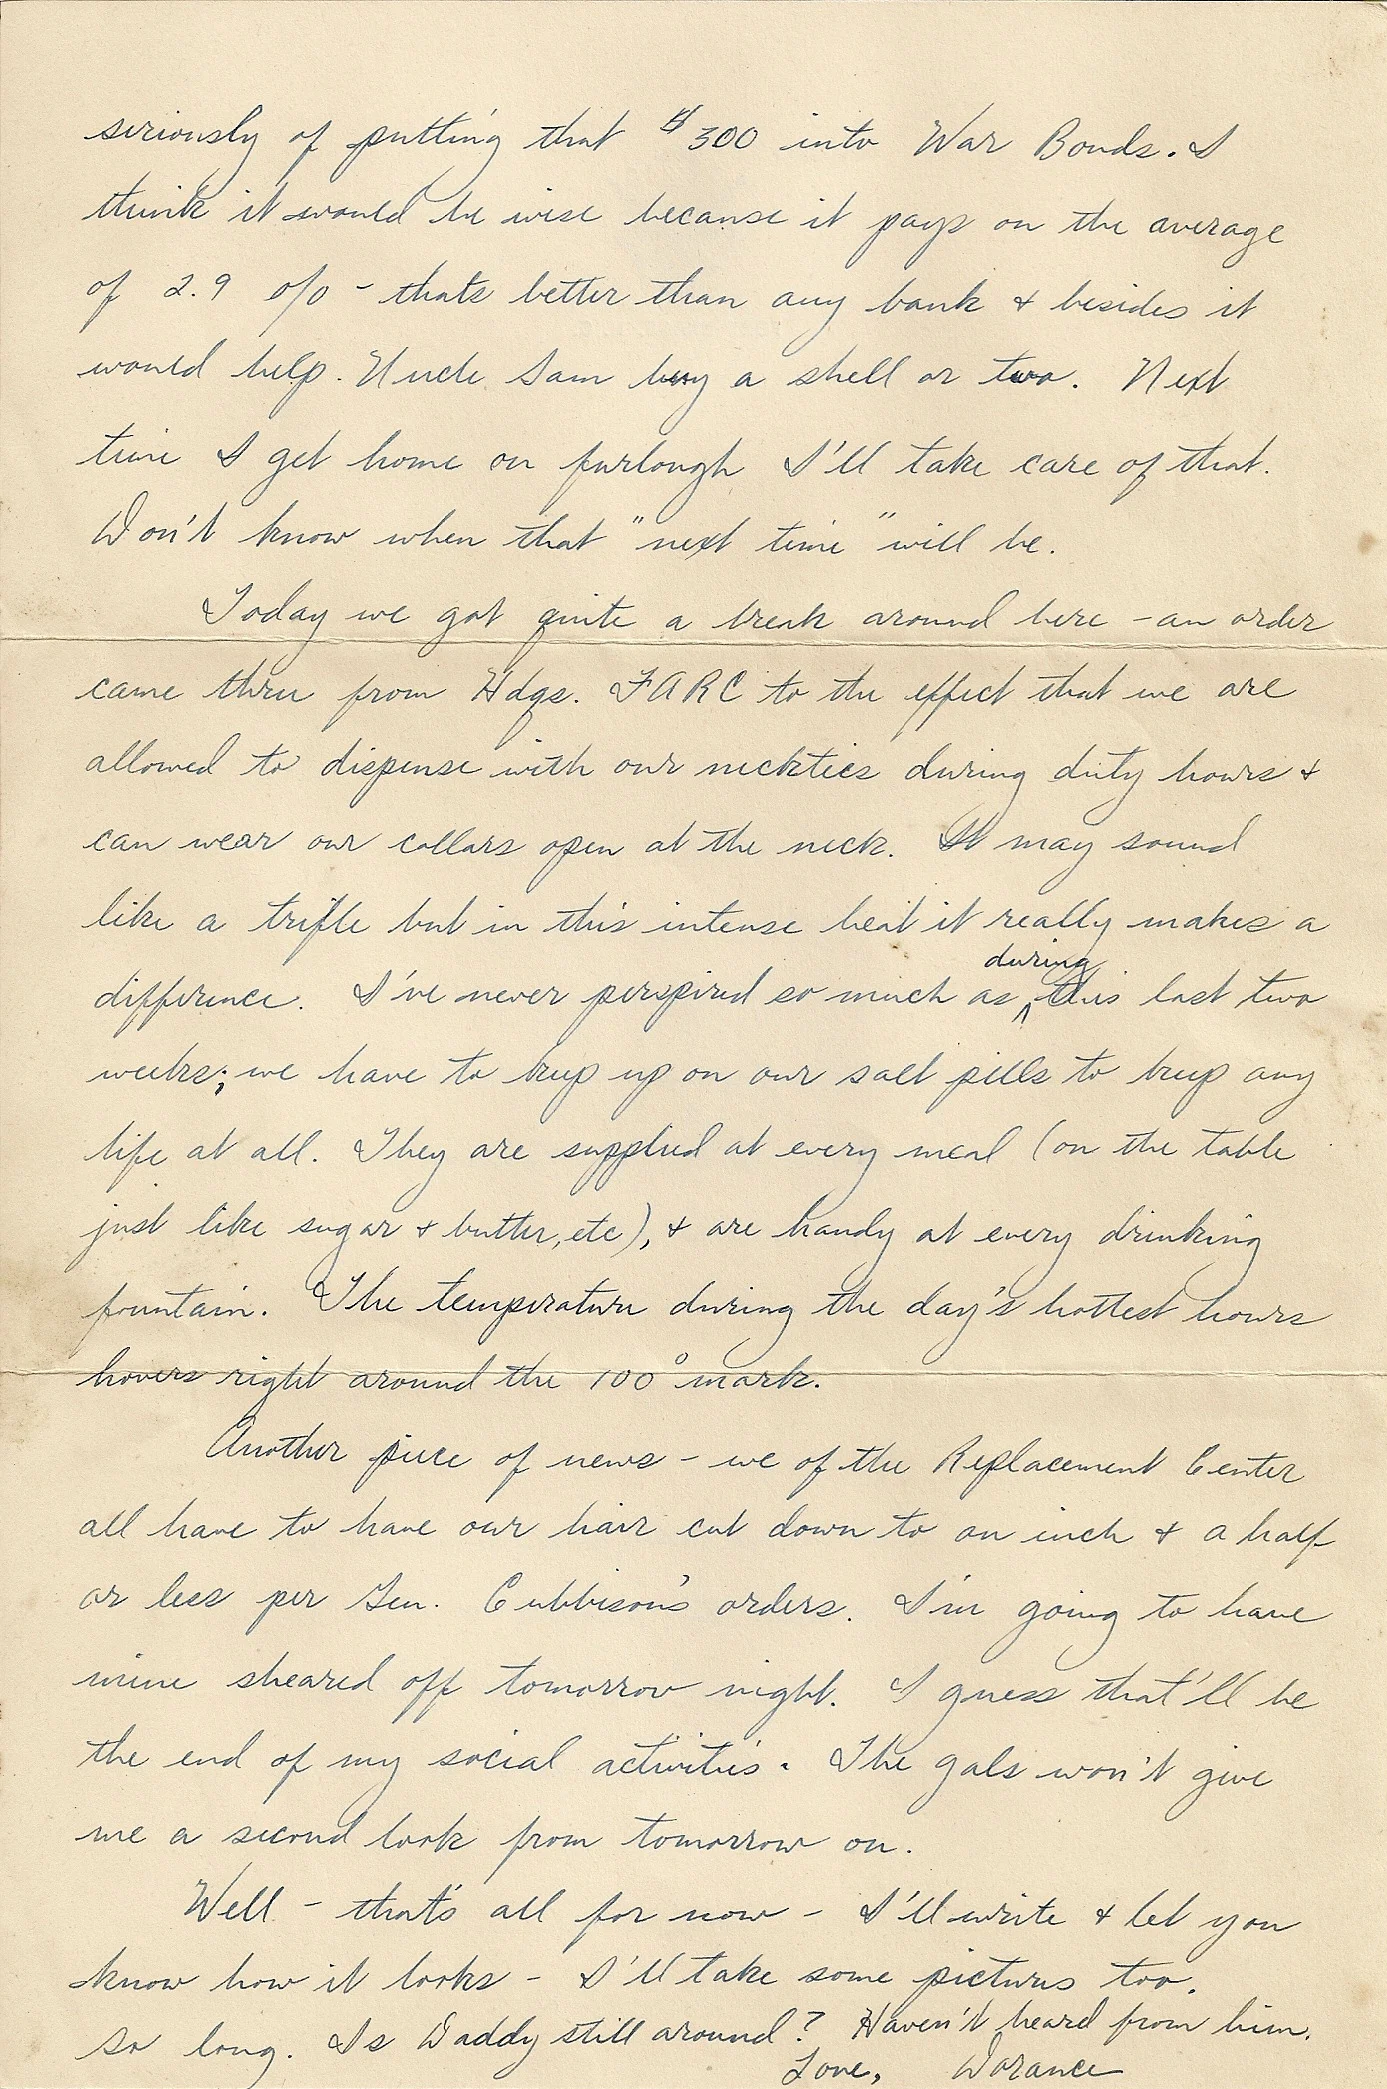 seriously of putting that $300 into War Bonds. I
think it would be wise because it pays on the average
of 2.9 o/o - that's better than any bank & besides it
would help. Uncle Sam buy a shell or two. Next
time I get home on furlough I'll take care of that.
Don't know when that "next time" will be.
Today we got quite a break around here - an order
came thru from Hdqs. FARC to the effect that we are
allowed to dispense with our neckties during duty hours &
can wear our collars open at the neck. It may sound
like a trifle but in this intense heat it really makes a
during
difference. I've never perspired so much as ^ this last two
weeks; we have to keep up on our salt pills to keep any
life at all. They are supplied at every meal (on the table
just like sugar & butter, etc), & are handy at every drinking
fountain. The temperature during the day's hottest hours
hovers right around the 100° mark.
Another piece of news - we of the Replacement Center
all have to have our hair cut down to an inch & a half
or less per Gen. Cubbison's orders. I'm going to have
mine sheared off tomorrow night. I guess that'll be
the end of my social activities. The gals won't give
me a second look from tomorrow on.
Well - that's all for now - I'll write & let you
know how it looks - I'll take some pictures too.
So long. Is Daddy still around? Haven't heard from him.
Love, Dorance